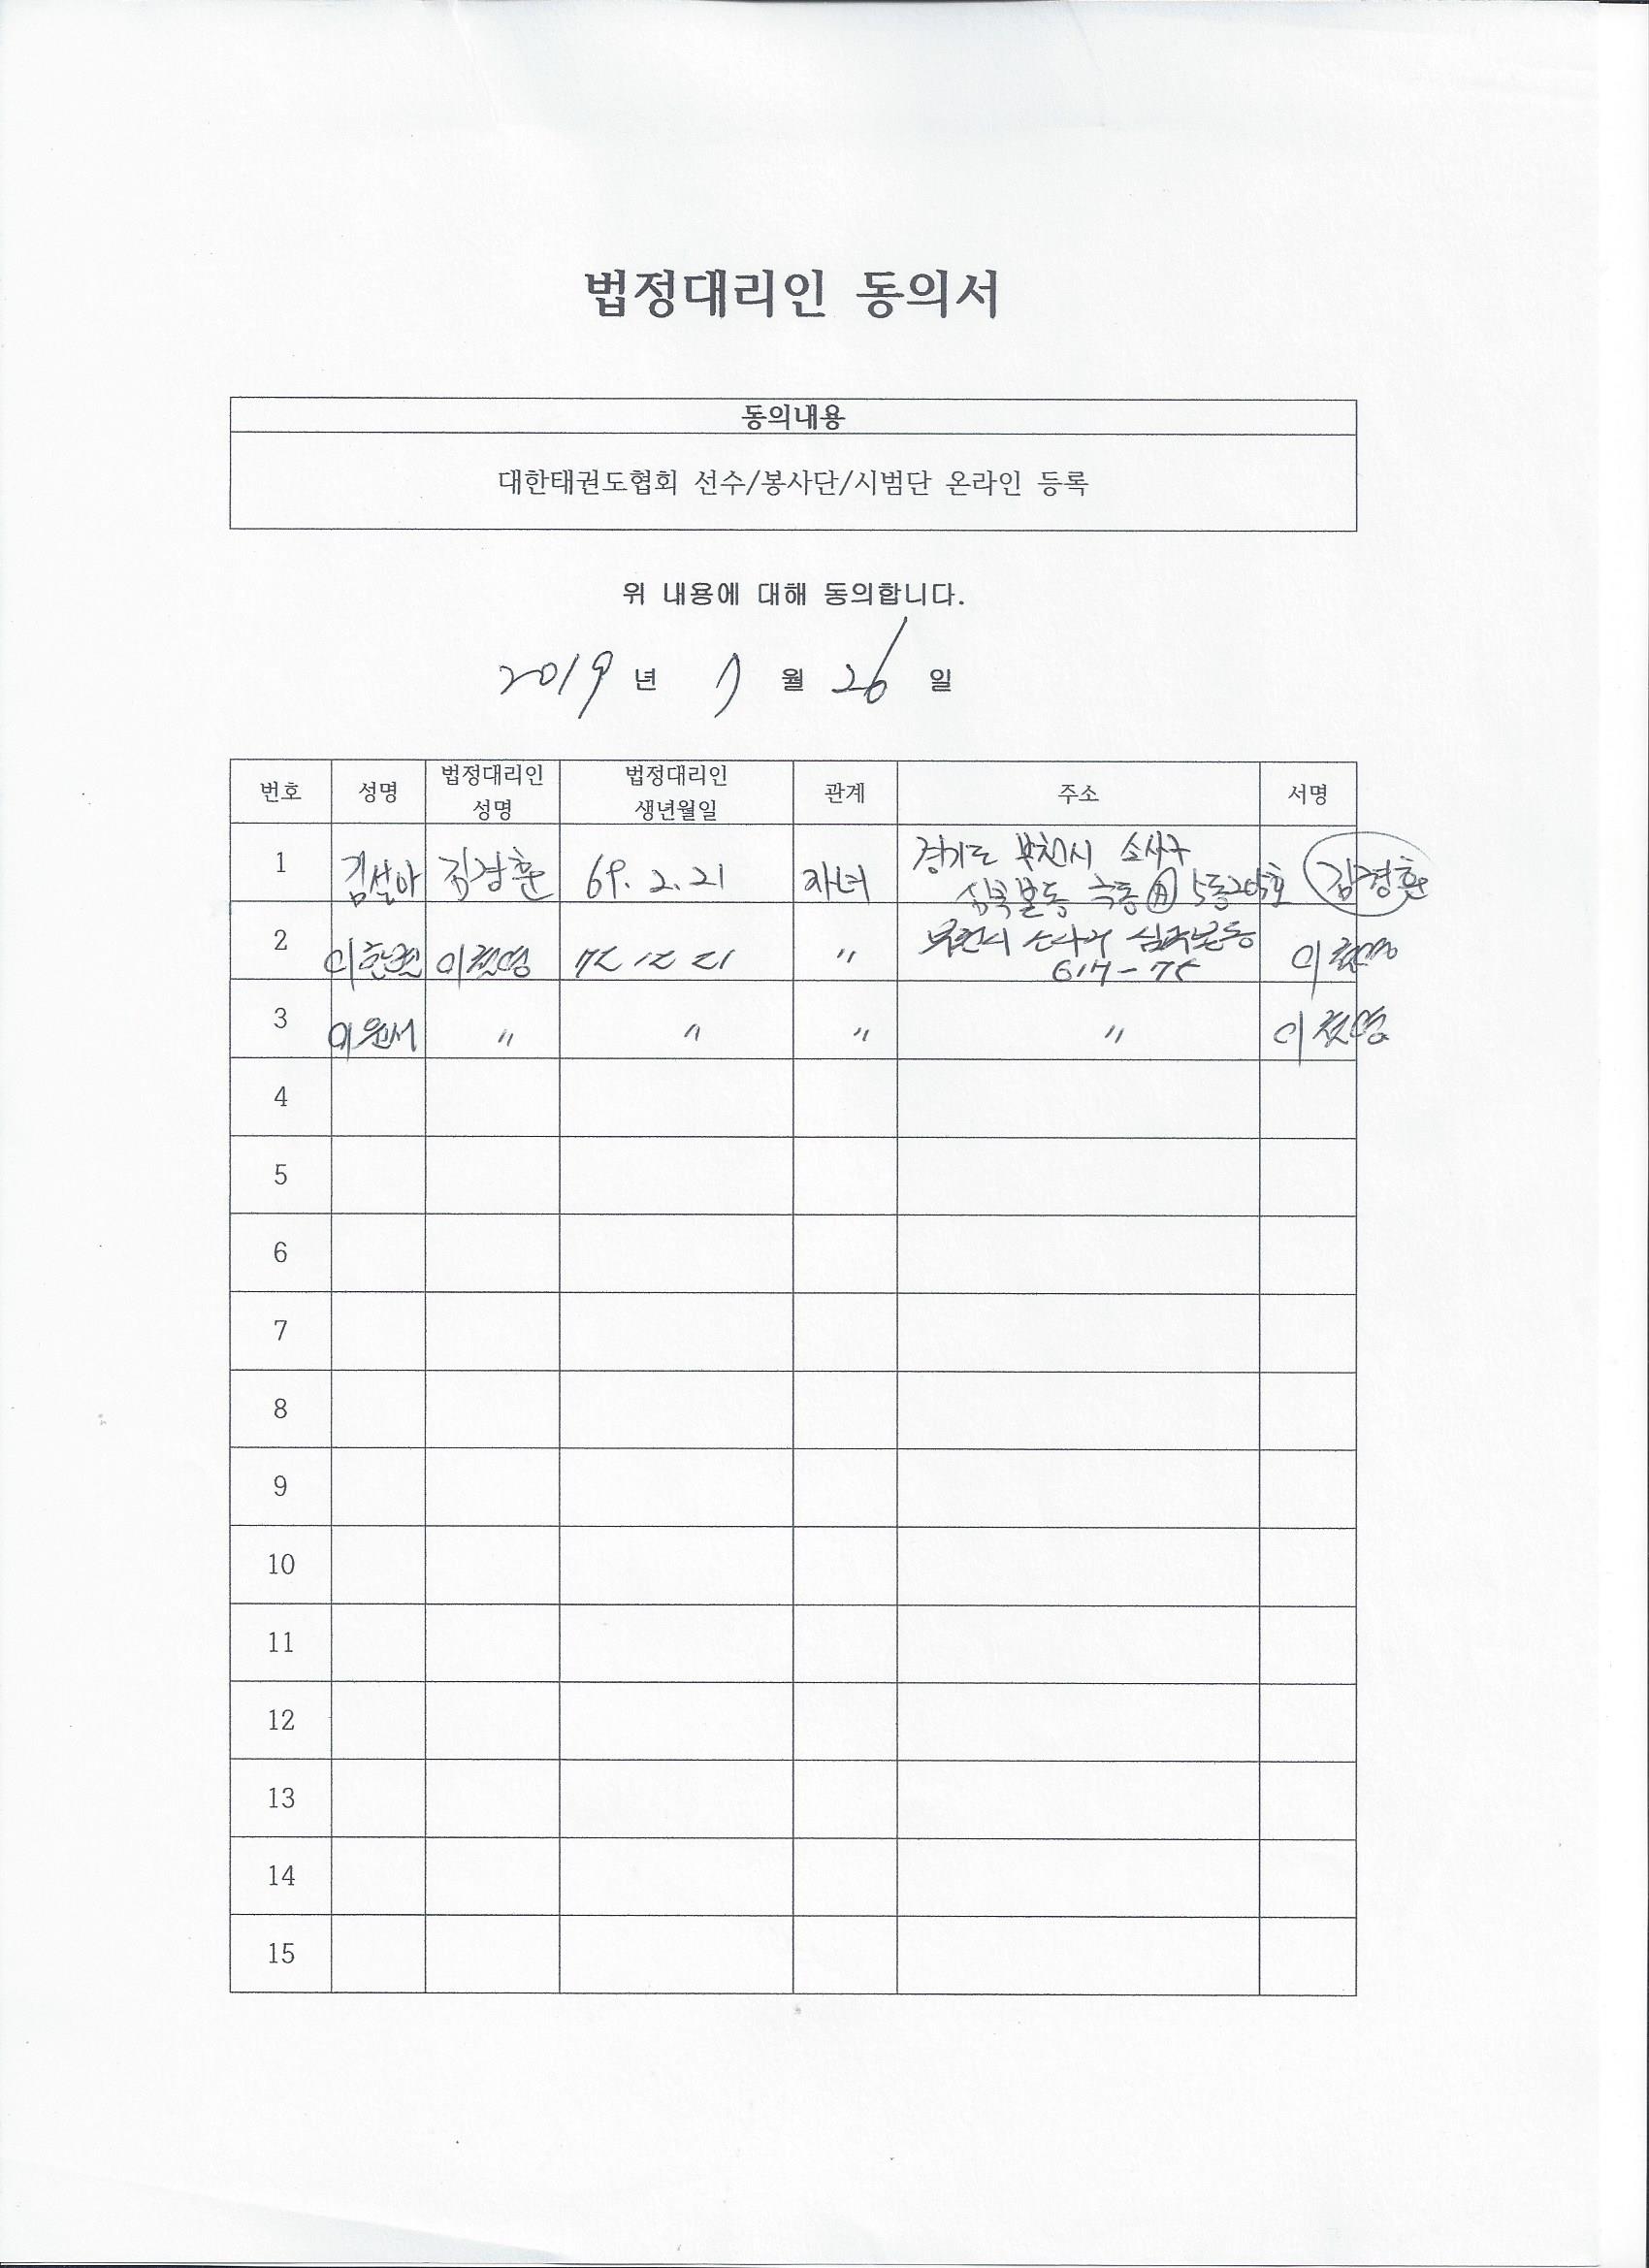 법정대리인 동의서
동의내용
대한태권도협회 선수/봉사단/시범단 온라인 등록
위 내용에 대해 동의합니다.
2019 년 7 월 26 일
번호 성명 법정대리인 성명 법정대리인 생년월일 관계 주소 서명
1 김설아 김경훈 69. 2. 21 자녀 경기도 부천시 소사구
심곡본동 극동 Ⓐ 5동 김경훈
2 72 12 21 〃 부천시 소사구 심곡본동
617-75
3 이원서 〃 〃 〃 〃
4
5
6
7
8
9
10
11
12
13
14
15